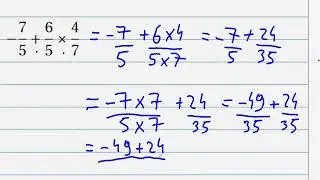 -7/5 + 6/5 × 4/7 = -7/5 + 6×4/5×7 = -7/5 + 24/35
= -7×7/5×7 + 24/35 = -49/35 + 24/35
= -49+24